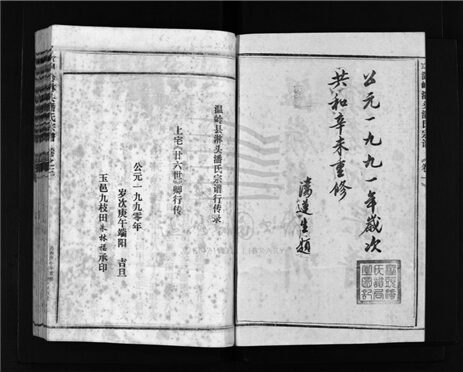 公元一九九一年歲次
共和辛未重修
潘道生題
温岭县淋头潘氏宗谱行传录
上宅《廿六世》卿行传
公元一九九零年
岁次庚午端阳 吉旦
玉邑九枝田朱林福承印